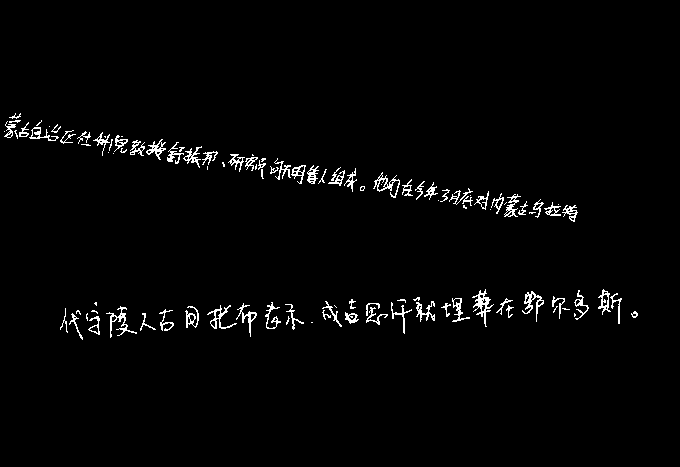 蒙古自治区社科院教授舒振邦、研究员何天明等人组成。他们在今年3月底对内蒙古乌拉特
代守陵人古日扎布表示,成吉思汗就埋葬在鄂尔多斯。